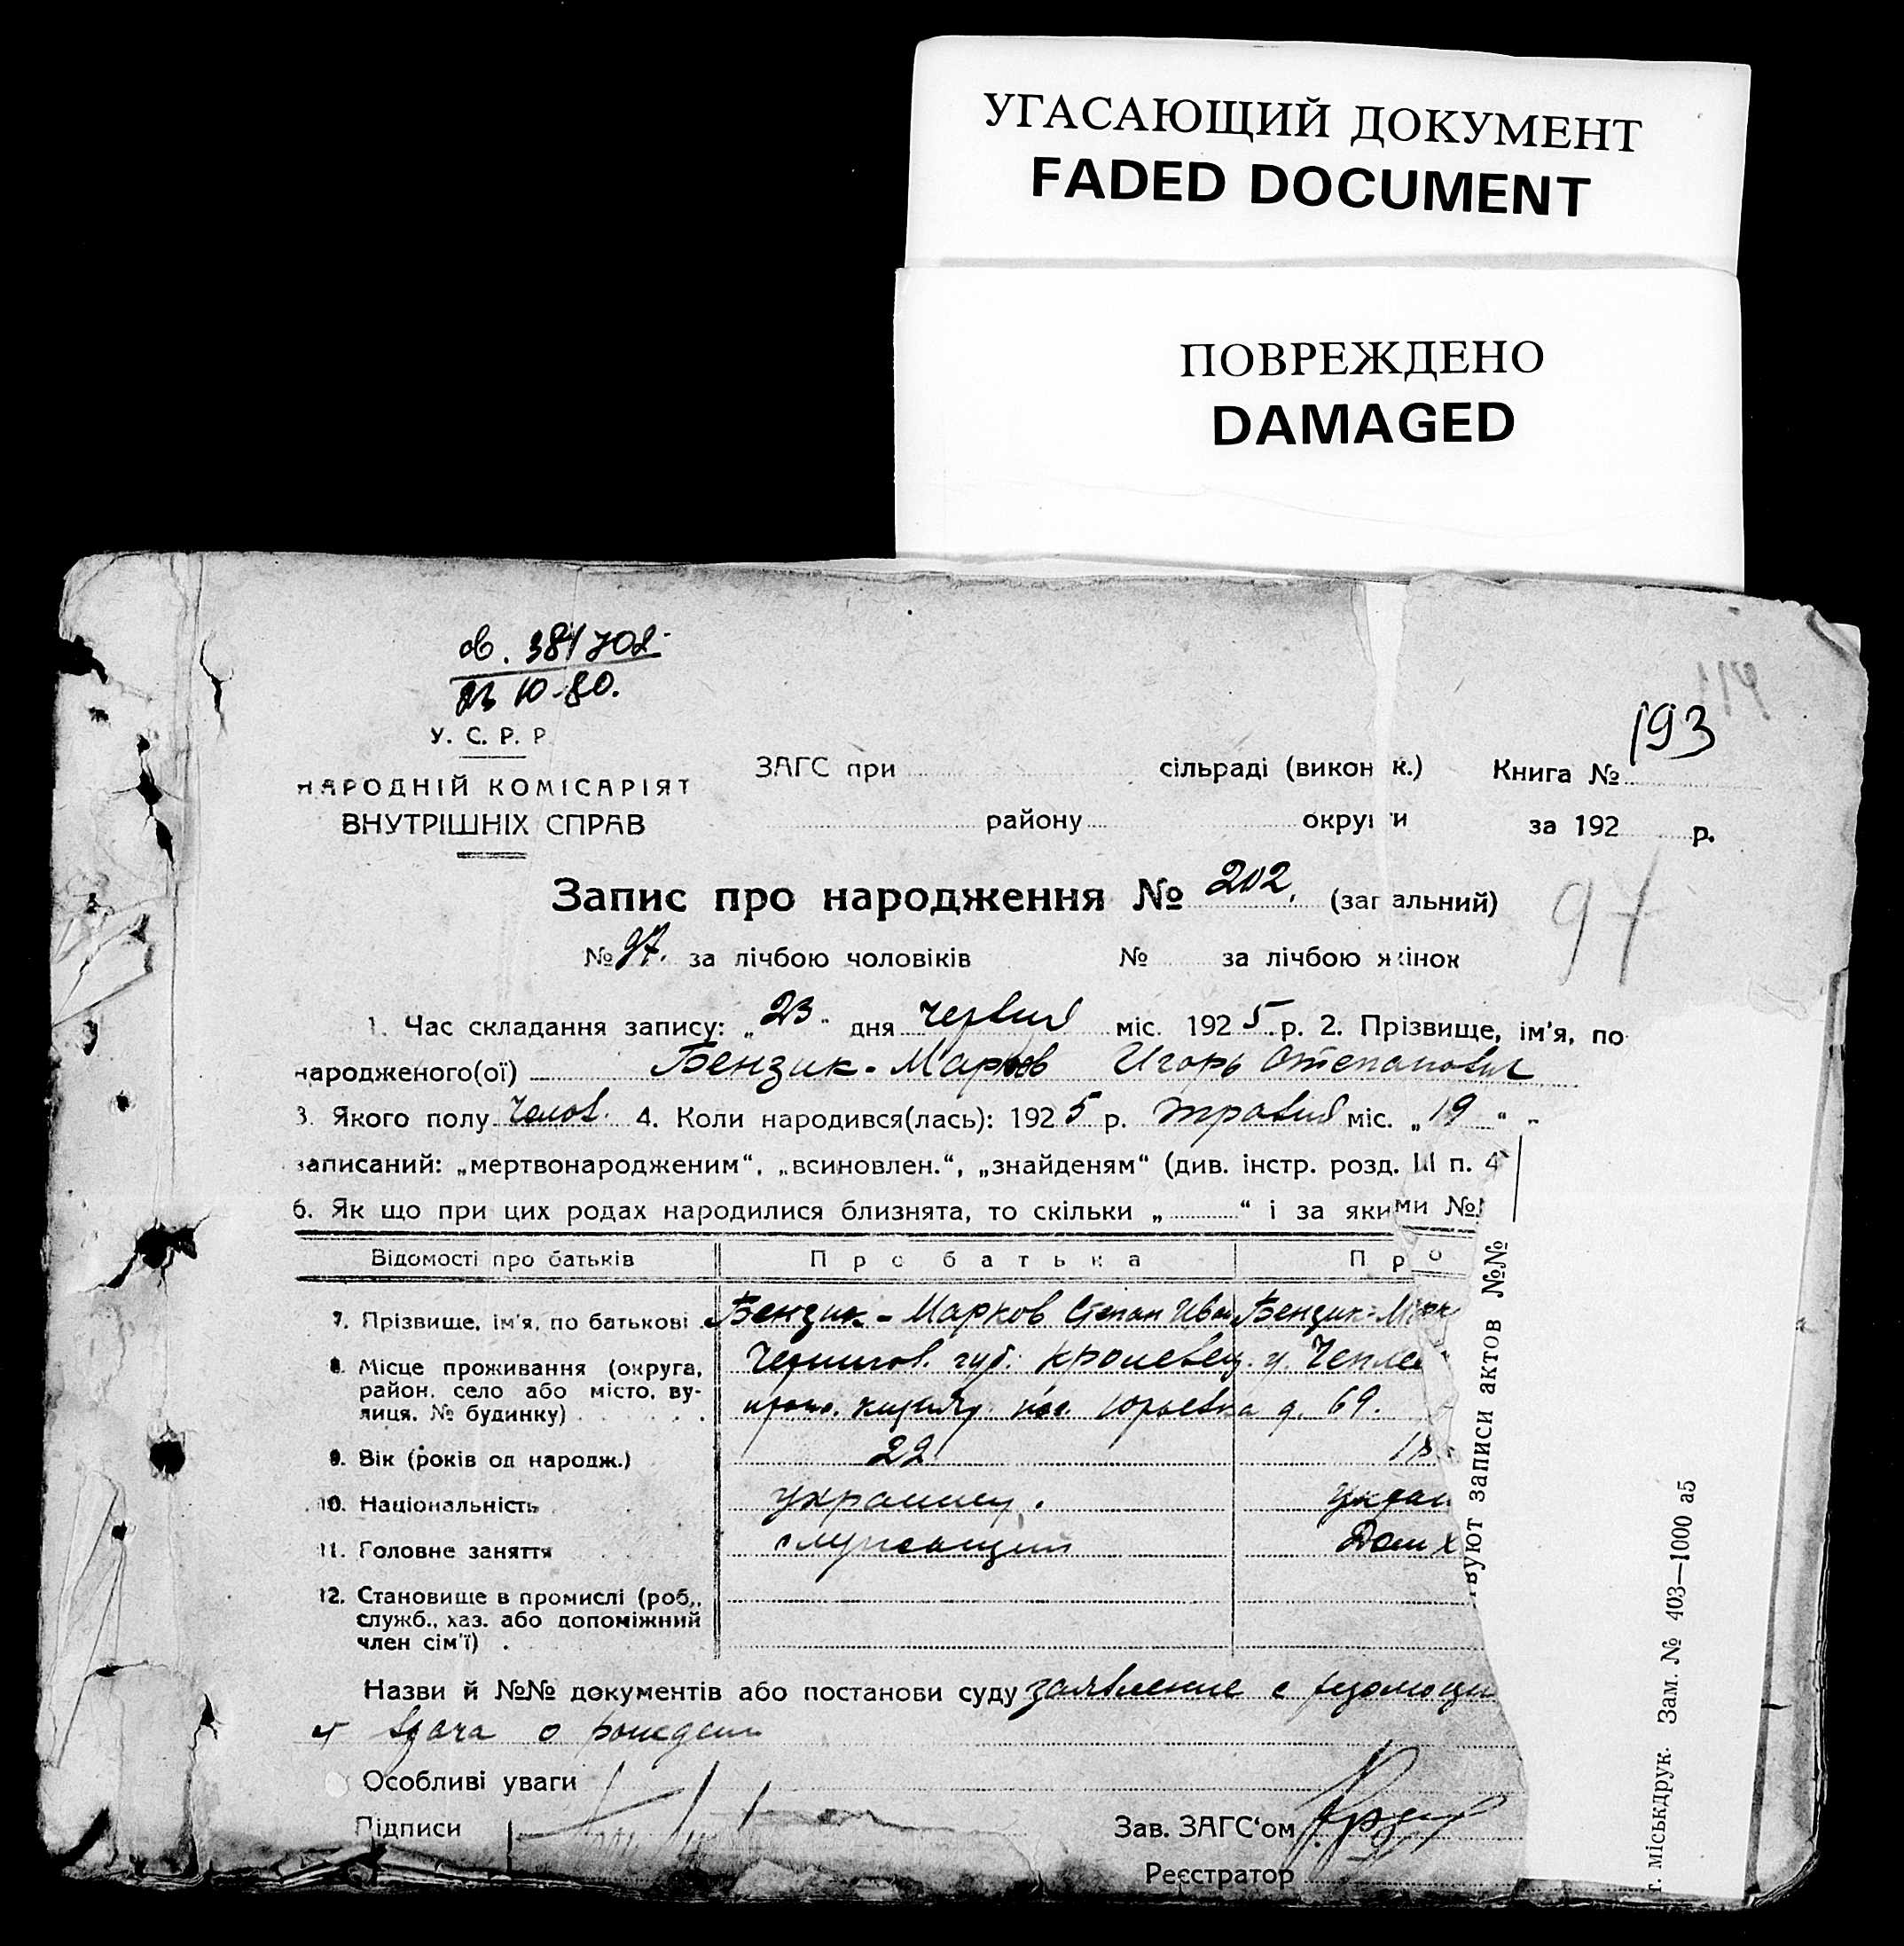 УГАСАЮЩИЙ ДОКУМЕНТ
FADED DOCUMENT
ПОВРЕЖДЕНО
DAMAGED
св. 381702
23 10-80.
У. С. Р. Р.
НАРОДНІЙ КОМІСАРІЯТ
ВНУТРІШНІХ СПРАВ
193
ЗАГС при сільраді (викон к.) Книга №
району округи за 192 р.
Запис про народження № 202. (загальний)
97
№ 97. за лічбою чоловіків № за лічбою жінок
1. Час складання запису: „23" дня червня міс. 1925 р. 2. Прізвище, ім'я, по
народженого(ої) Бензик-Марков Игорь Степанович
3. Якого полу чолов. 4. Коли народився(лась): 1925 р. травня міс. „19"
записаний: „мертвонародженим", „всиновлен.", „знайденям" (див. інстр. розд. III п. 4
6. Як що при цих родах народилися близнята, то скільки „ " і за якими №
Відомості про батьків Про батька Про
7. Прізвище, ім'я, по батькові Бензик-Марков Степан Иван Бензик-Марк
8. Місце проживання (округа, район, село або місто, вулиця, № будинку) Чернигов. губ. Кролевец. у.
пос. Юрьевка д. 69.
9. Вік (років од народж.) 22 18
10. Національність украинец. украи
11. Головне заняття служащий Дом х
12. Становище в промислі (роб., служб., хаз. або допоміжний член сім'ї)
Назви й №№ документів або постанови суду заявление с
врача о рожден
Особливі уваги
Підписи Зав. ЗАГС'ом
Реєстратор
вуют записи актов №№
г. міськдрук. Зам. № 403—1000 а5